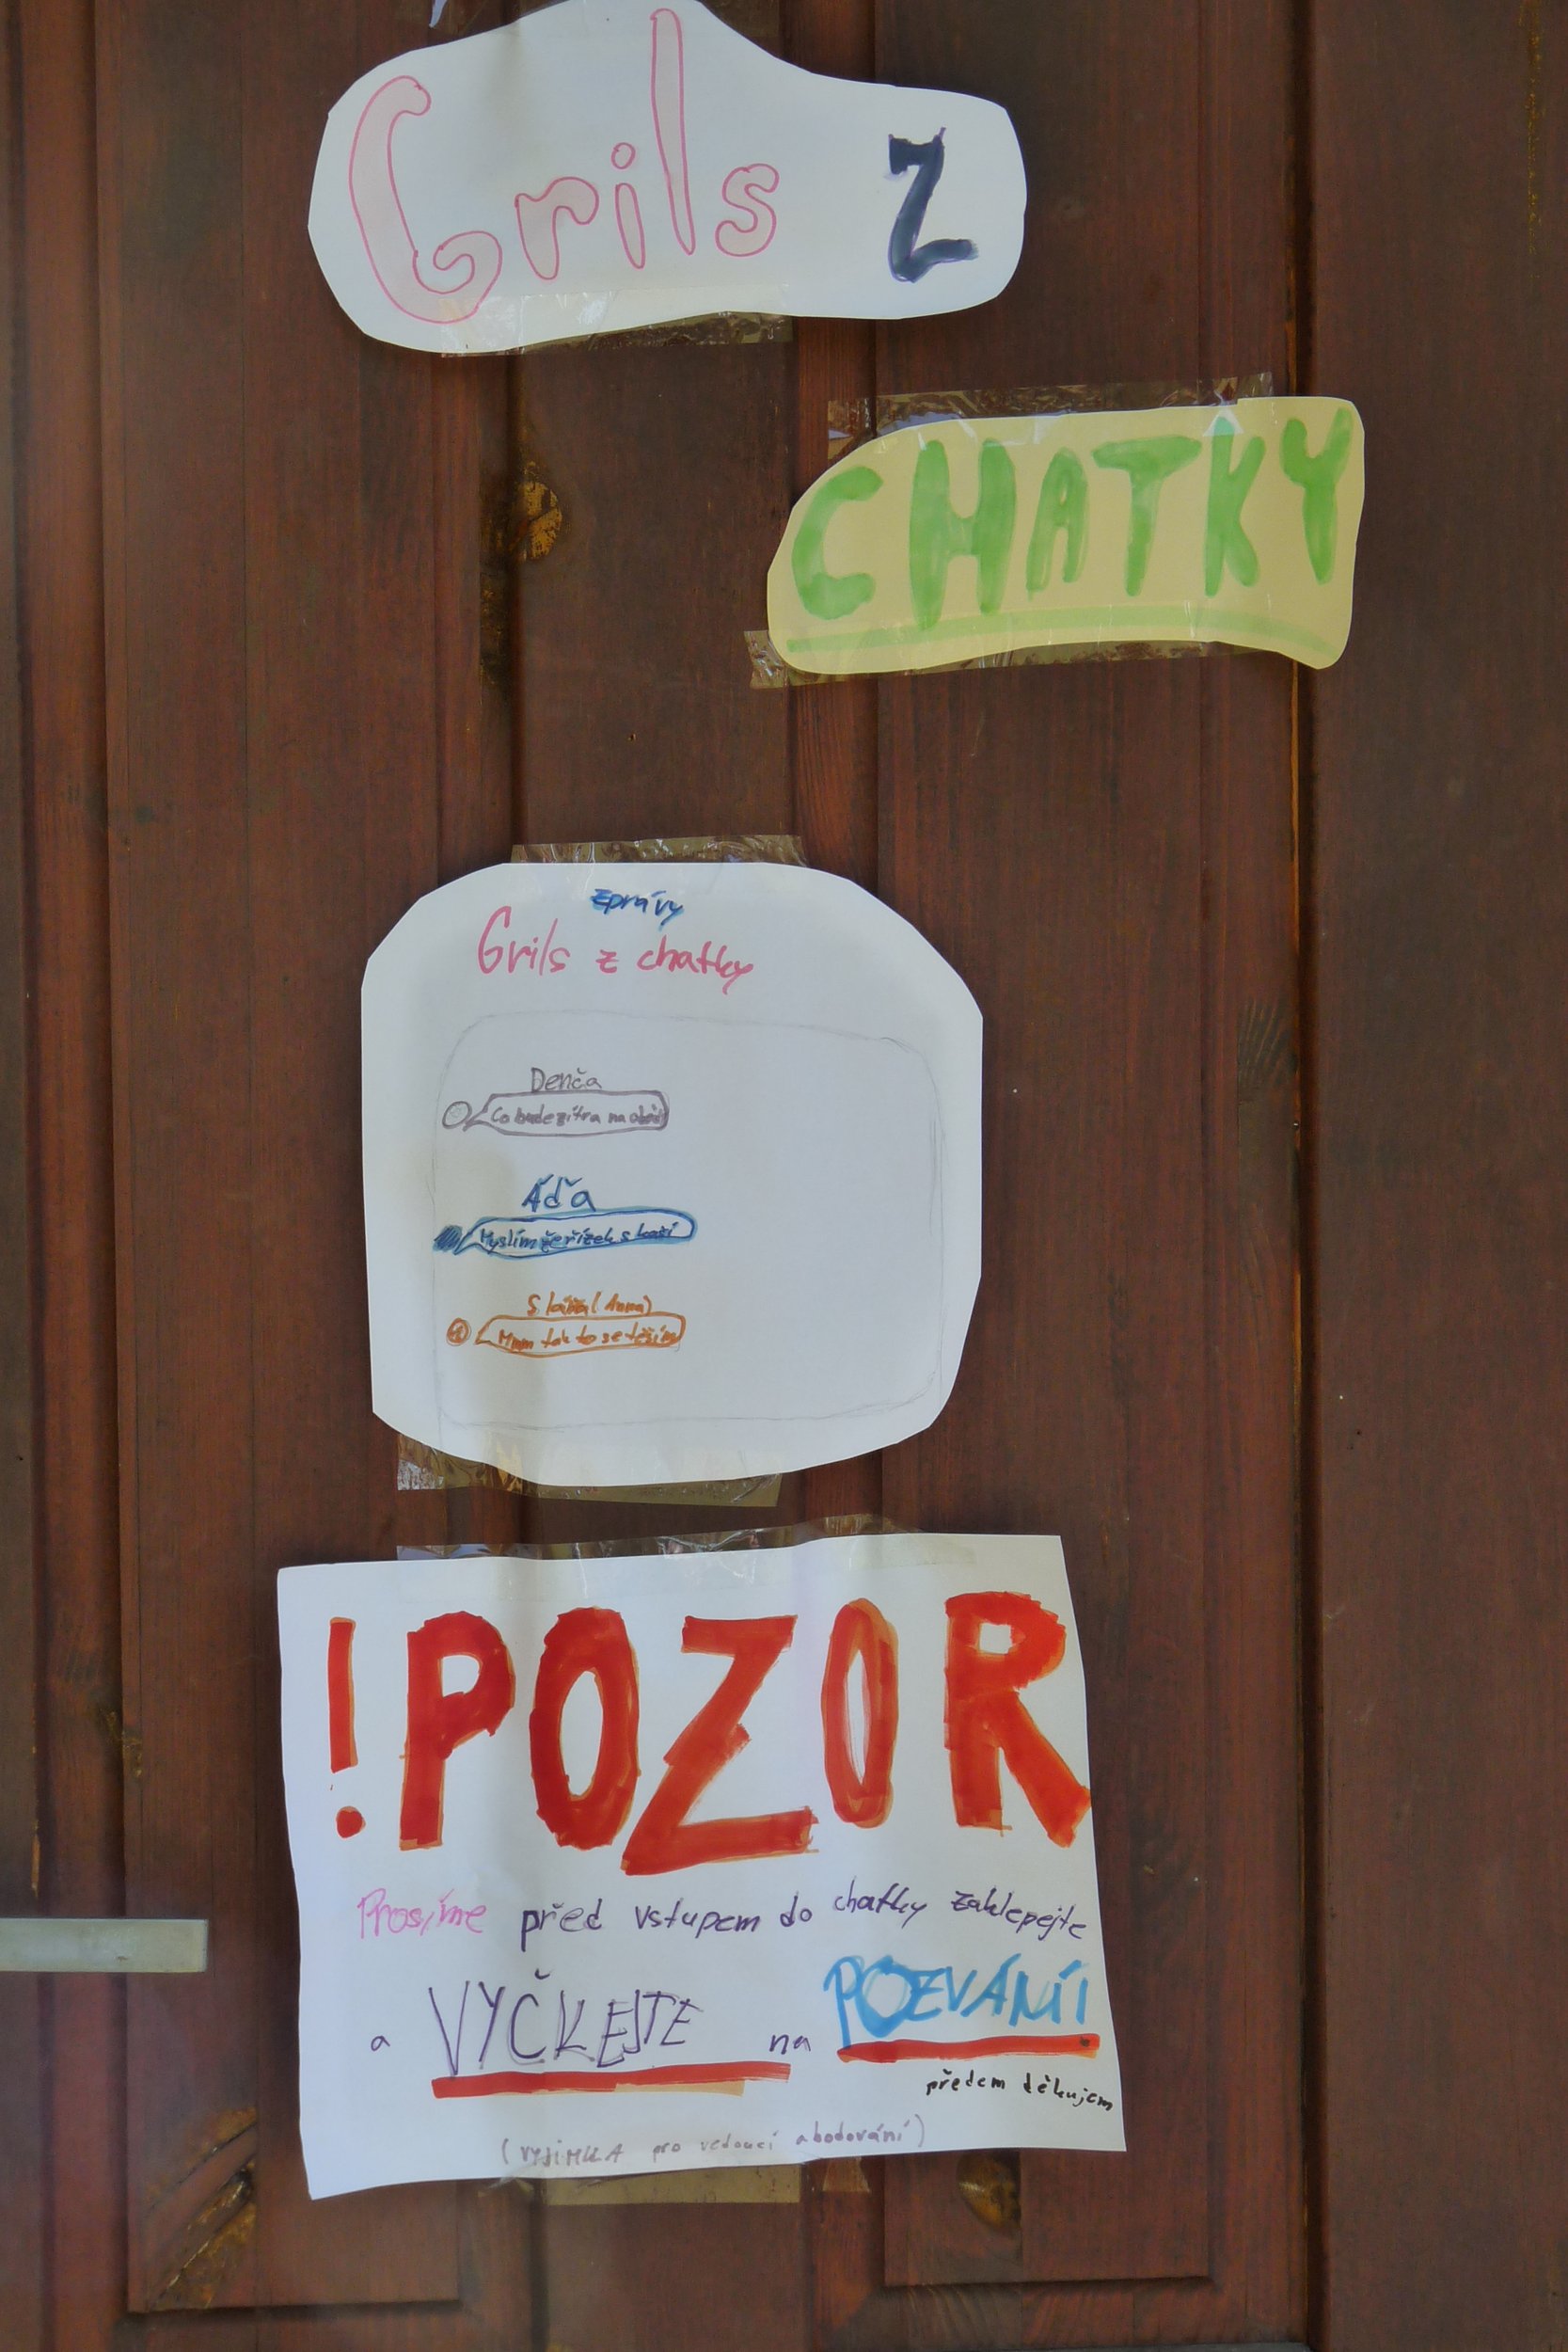 Grils z
CHATKY
zprávy
Grils z chatky
Denča
Co bude zítra na oběd
Áďa
Myslím že řízek s kaší
(Anna)
Mmm tak to se těším
! POZOR
Prosíme před vstupem do chatky zaklepejte
a VYČKEJTE na POZVÁNÍ!
předem děkujem
(VYJIMKA pro vedoucí a bodování)